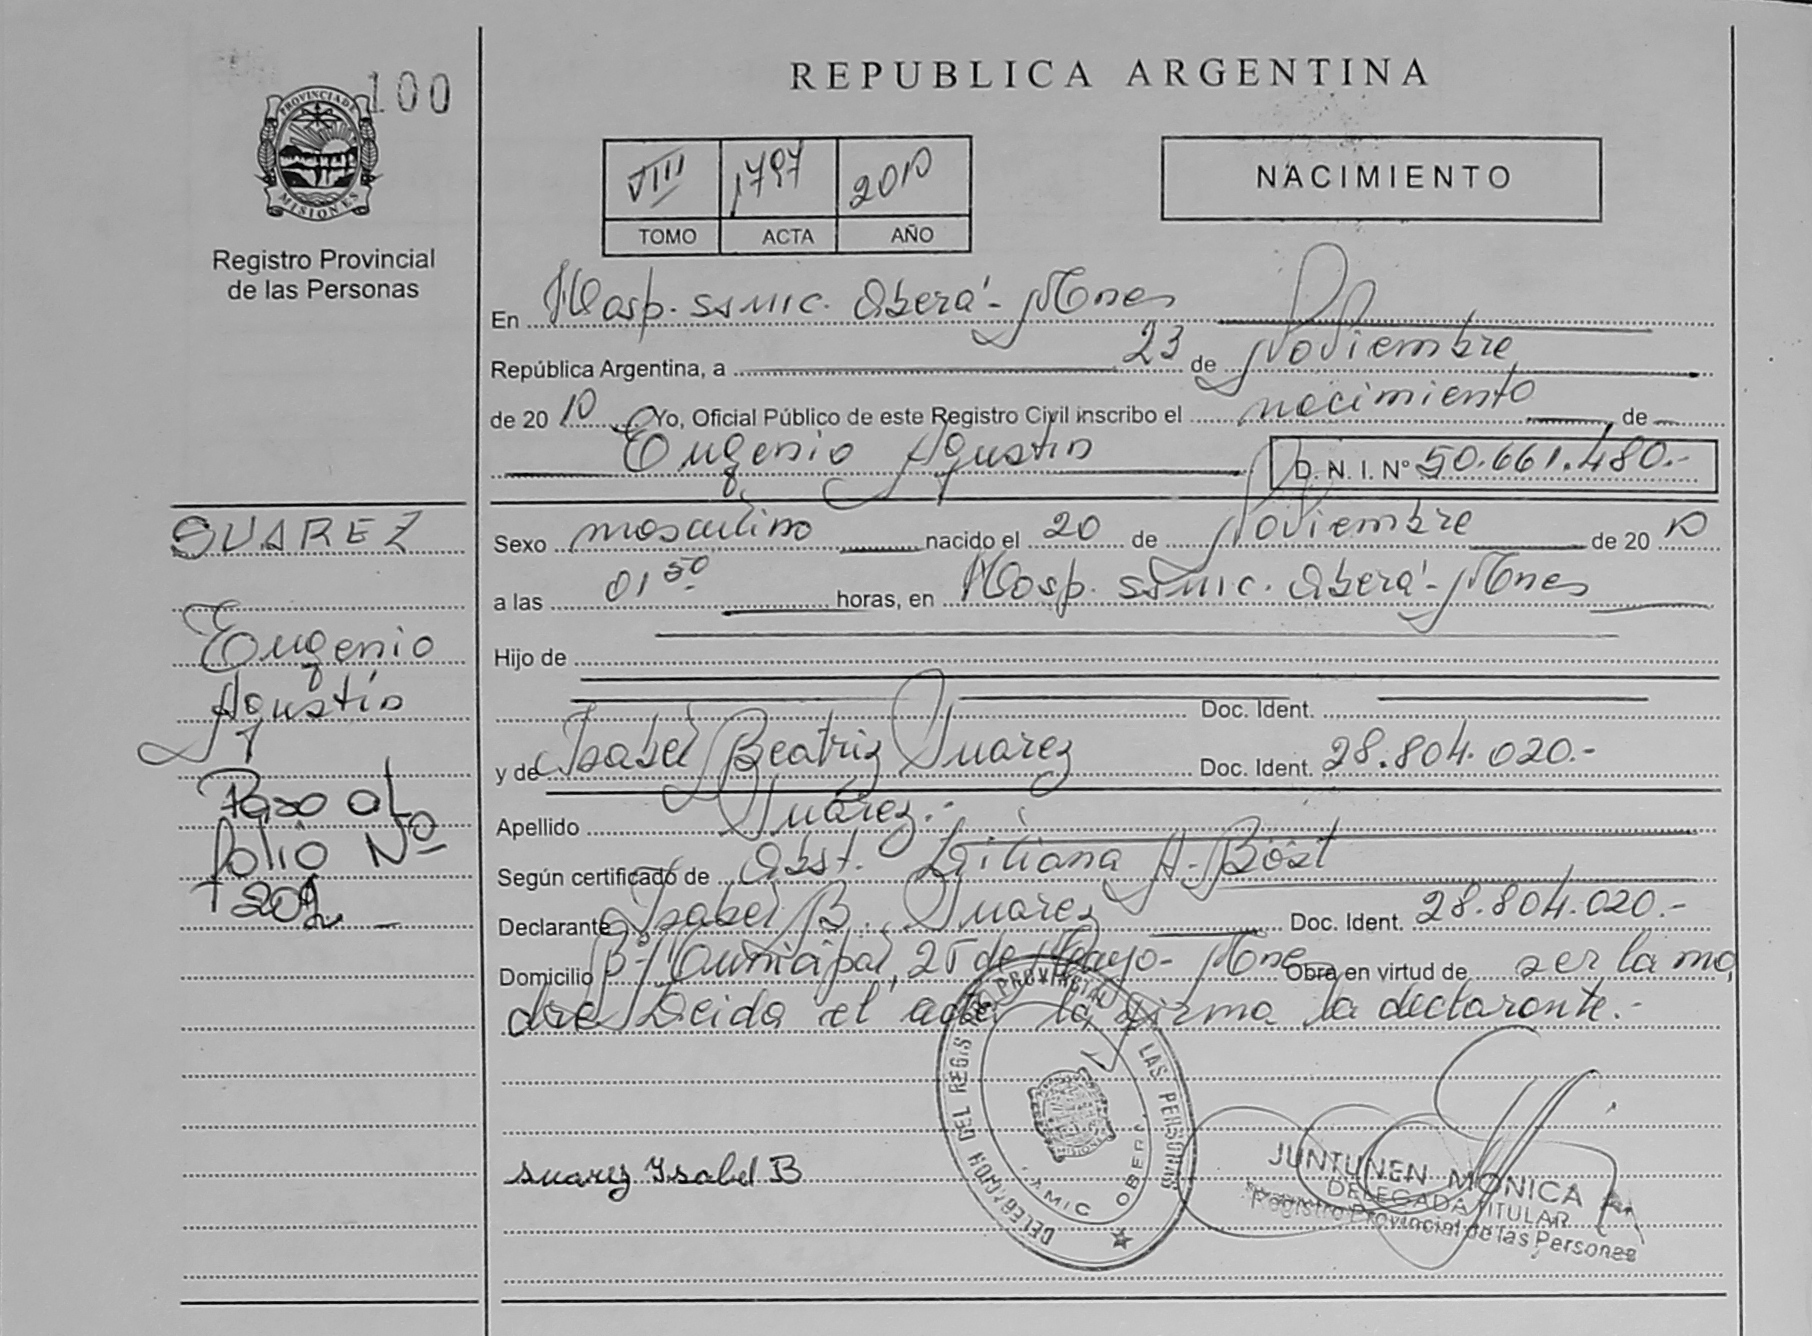 100
PROVINCIA DE
MISIONES
Registro Provincial
de las Personas
REPUBLICA ARGENTINA
VIII 1797 2010
TOMO ACTA AÑO
NACIMIENTO
En Hosp. SAMIC. Oberá - Mnes
República Argentina, a 23 de Noviembre
de 20 10 Yo, Oficial Público de este Registro Civil inscribo el nacimiento de
Eugenio Agustin D. N. I. Nº 50.661.480.-
Sexo masculino nacido el 20 de Noviembre de 20 10
a las 01 50 horas, en Hosp. SAMIC. Oberá - Mnes
Hijo de
Doc. Ident.
y de Isabel Beatriz Suarez Doc. Ident. 28.804.020.-
Apellido Suárez.-
Según certificado de Obst. Liliana A. Böst
Declarante Isabel B. Suarez Doc. Ident. 28.804.020.-
Domicilio Bº Municipal, 25 de Mayo - Mnes Obra en virtud de ser la ma
dre Leida el acta la firma la declarante.-
SUAREZ
Eugenio
Agustín
Paso al
folio Nº
suarez Ysabel B
DELEGACION DEL REGIS PROVINCIAL LAS PERSONAS
SAMIC OBERA
JUNTUNEN MONICA
DELEGADA TITULAR
Registro Provincial de las Personas